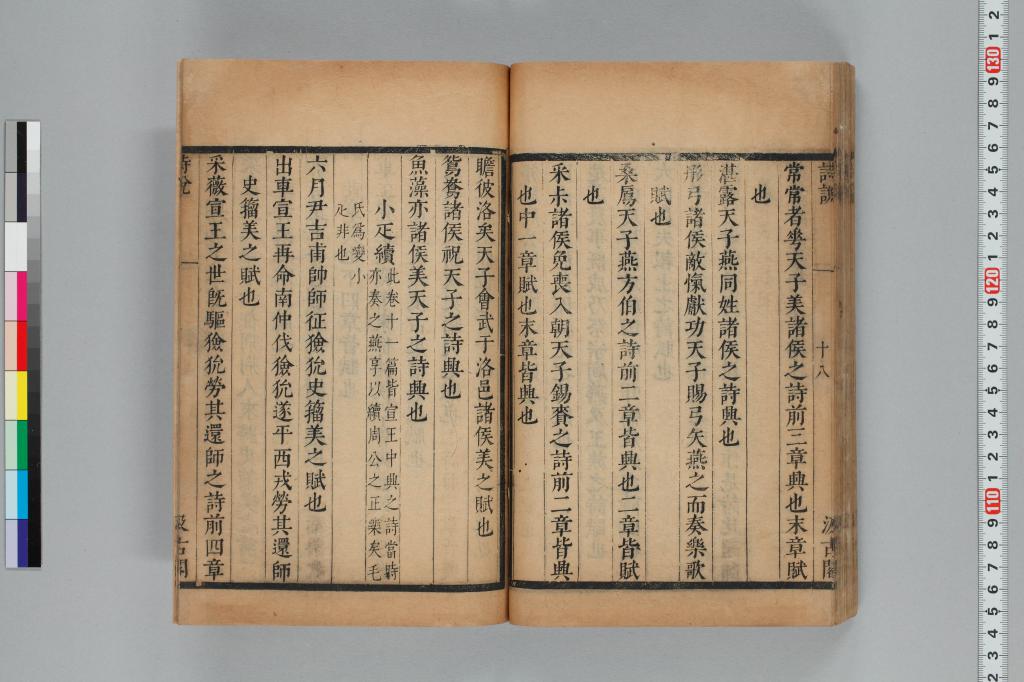 詩說
十八
汲古閣
常常者芲天子美諸侯之詩前三章興也末章賦
也
湛露天子燕同姓諸侯之詩興也
彤弓諸侯敵愾獻功天子賜弓矢燕之而奏樂歌
賦也
桑扈天子燕方伯之詩前二章皆興也二章皆賦
也
采尗諸侯免喪入朝天子錫賚之詩前二章皆興
也中一章賦也末章皆興也
瞻彼洛矣天子會武于洛邑諸侯美之賦也
鴛鴦諸侯祝天子之詩興也
魚藻亦諸侯美天子之詩興也
小疋續
此卷十一篇皆宣王中興之詩當時
亦奏之燕享以續周公之正樂矣毛
氏為變小
疋非也
六月尹吉甫帥師征獫狁史籀美之賦也
出車宣王再命南仲伐獫狁遂平西戎勞其還師
史籀美之賦也
采薇宣王之世既驅獫狁勞其還師之詩前四章
詩說
汲古閣
2 1 130 9 8 7 6 5 4 3 2 1 120 9 8 7 6 5 4 3 2 1 110 9 8 7 6 5 4 3 2